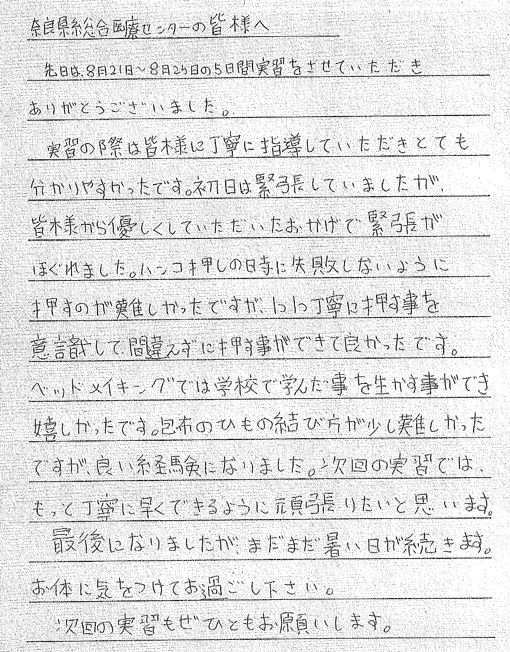 奈良県総合医療センターの皆様へ
先日は、8月21日~8月25日の5日間実習をさせていただき
ありがとうございました。
実習の際は皆様に丁寧に指導していただきとても
分かりやすかったです。初日は緊張していましたが、
皆様から優しくしていただいたおかげで緊張が
ほぐれました。ハンコ押しの時に失敗しないように
押すのが難しかったですが、1つ1つ丁寧に押す事を
意識して、間違えずに押す事ができて良かったです。
ベッドメイキングでは学校で学んだ事を生かす事ができ
嬉しかったです。包布のひもの結び方が少し難しかった
ですが、良い経験になりました。次回の実習では、
もって丁寧に早くできるように頑張りたいと思います。
最後になりましたが、まだまだ暑い日が続きます。
お体に気をつけてお過ごし下さい。
次回の実習もぜひともお願いします。